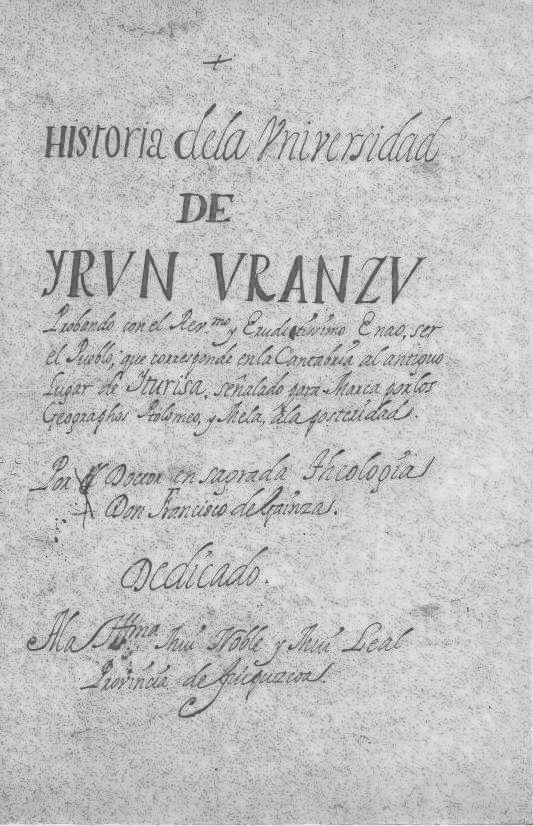 +
Historia dela Vniversidad
DE
YRVN VRANZV
Probando con el Rer.mo y Eruditissimo Enao, ser
el Pueblo, que corresponde en la Cantabria al antiguo
Lugar de Yturisa, señalado para Marca por los
Geographos Ptolomeo, y Mela, à la posteridad.
Por el Doctor en sagrada Theologia
Don Francisco de Gainza.
Dedicado.
Ala Illma. Mui Noble y Mui Leal
Provincia de Guipuzcoa.